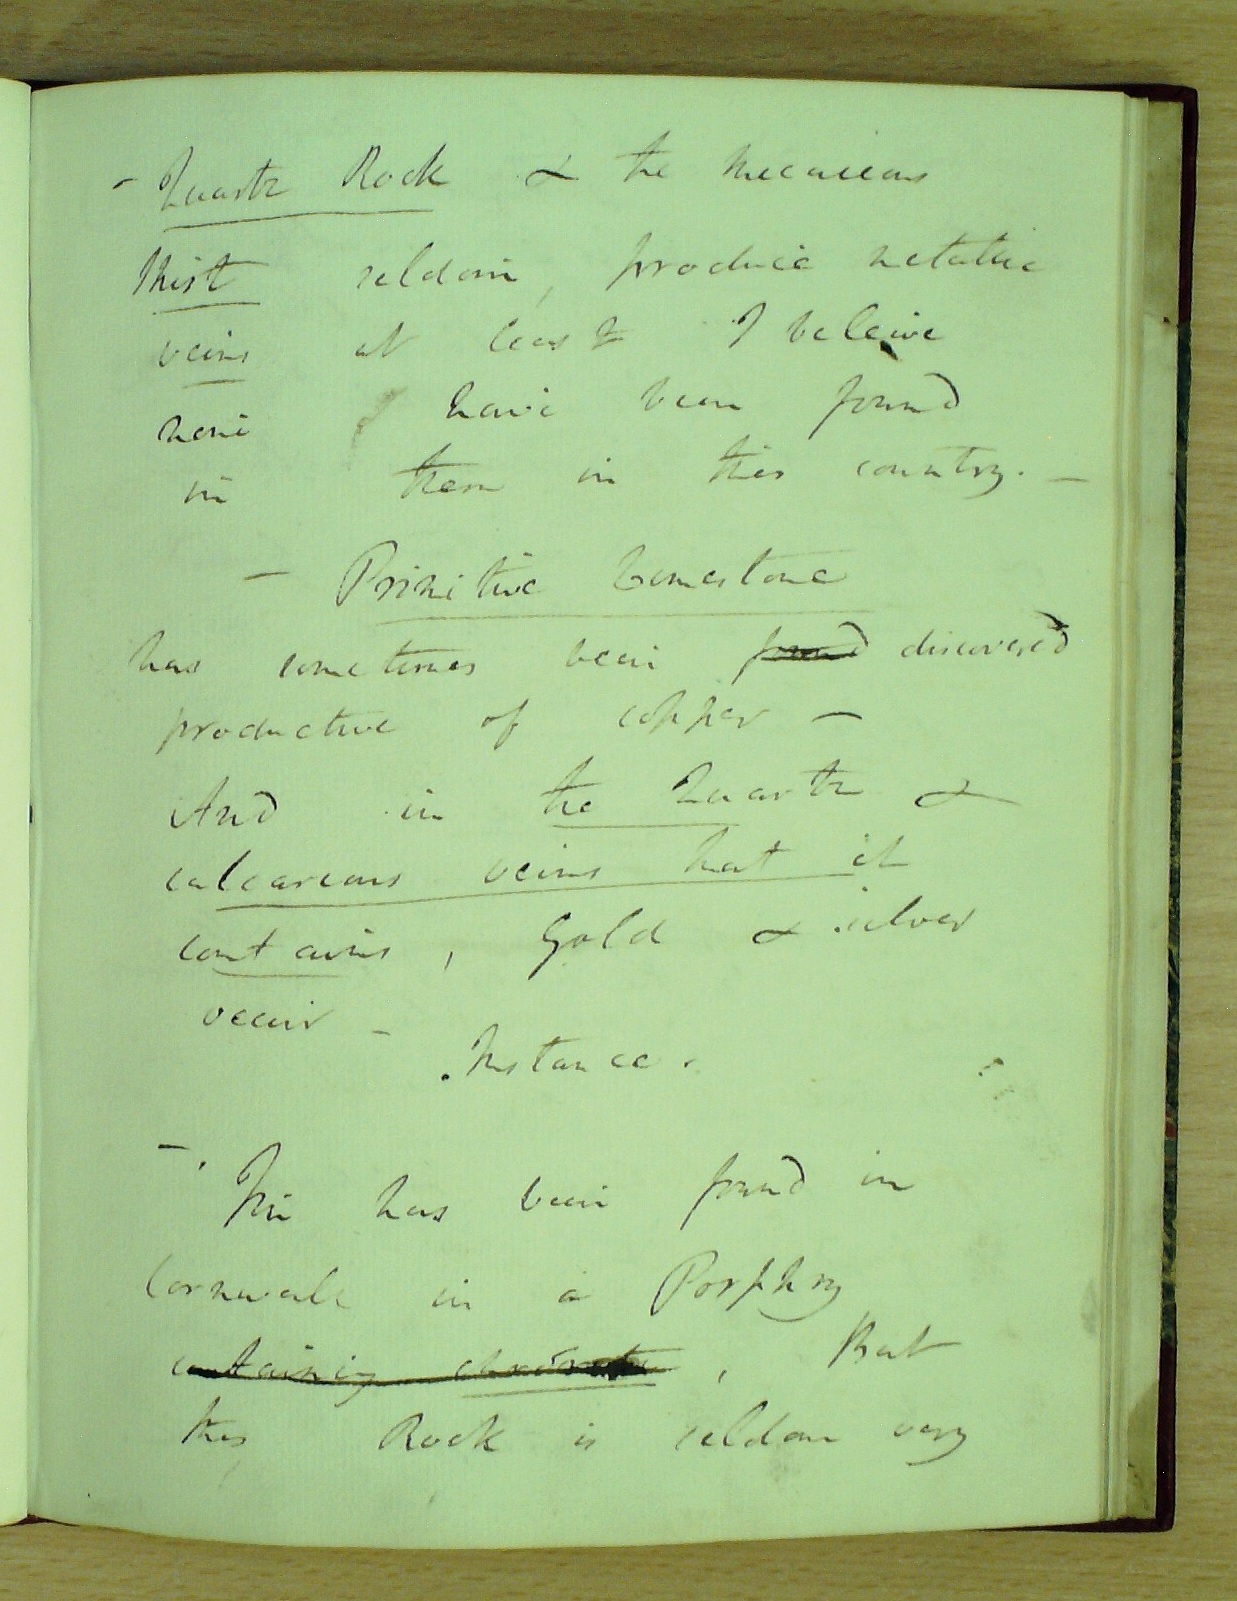 - Quartz Rock & the Micaceous
Shist seldom, produce metallic
veins at least I beleive
none have been found
in them in this country. -
- Primitive Limestone
has sometimes been found discovered
productive of copper -
And in the Quartz &
calcareous veins that it
contains, Gold & silver
occur -
. Instance .
- . Tin has been found in
Cornwall in a Porphry
containing , But
this Rock is seldom very